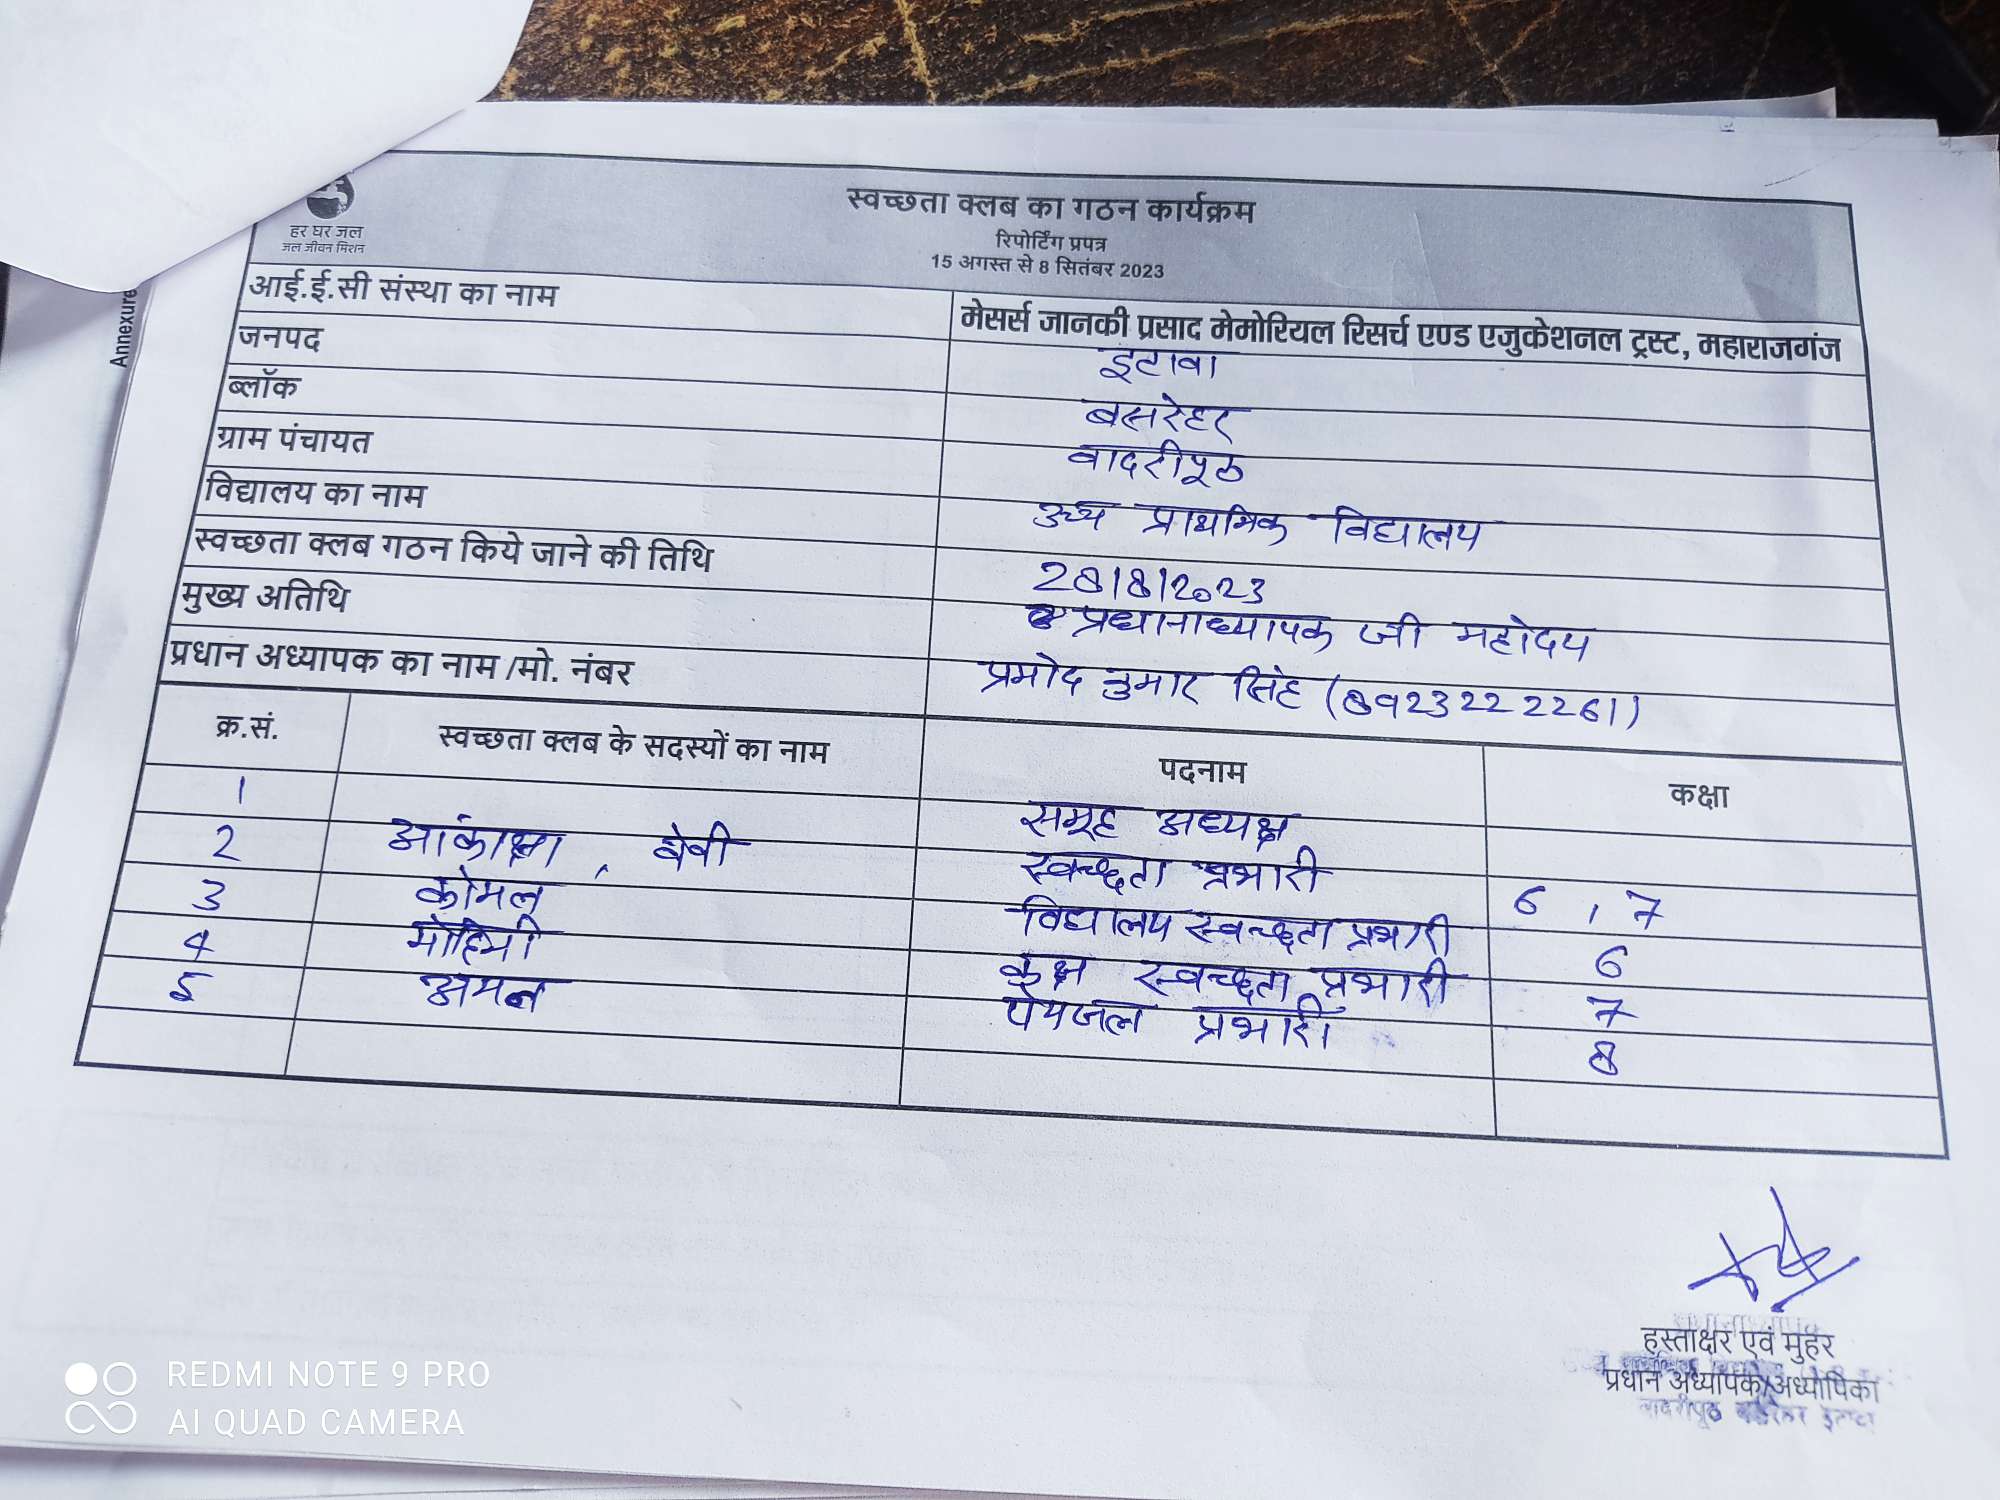 स्वच्छता क्लब का गठन कार्यक्रम
रिपोर्टिंग प्रपत्र
15 अगस्त से 8 सितंबर 2023
हर घर जल
जल जीवन मिशन
Annexure
आई.ई.सी संस्था का नाम मेसर्स जानकी प्रसाद मेमोरियल रिसर्च एण्ड एजुकेशनल ट्रस्ट, महाराजगंज
जनपद इटावा
ब्लॉक बसरेहर
ग्राम पंचायत वादरीपूठ
विद्यालय का नाम उच्च प्राथमिक विद्यालय
स्वच्छता क्लब गठन किये जाने की तिथि 28/8/2023
मुख्य अतिथि प्रधानाध्यापक जी महोदय
प्रधान अध्यापक का नाम /मो. नंबर प्रमोद कुमार सिंह (8923222261)
क्र.सं. स्वच्छता क्लब के सदस्यों का नाम पदनाम कक्षा
1 समूह अध्यक्ष
2 आकांक्षा , बेबी स्वच्छता प्रभारी 6 , 7
3 कोमल विद्यालय स्वच्छता प्रभारी 6
4 मोहिनी कक्ष स्वच्छता प्रभारी 7
5 अमन पेयजल प्रभारी 8
हस्ताक्षर एवं मुहर
प्रधान अध्यापक/अध्यापिका
वादरीपूठ बसरेहर इटावा
REDMI NOTE 9 PRO
AI QUAD CAMERA